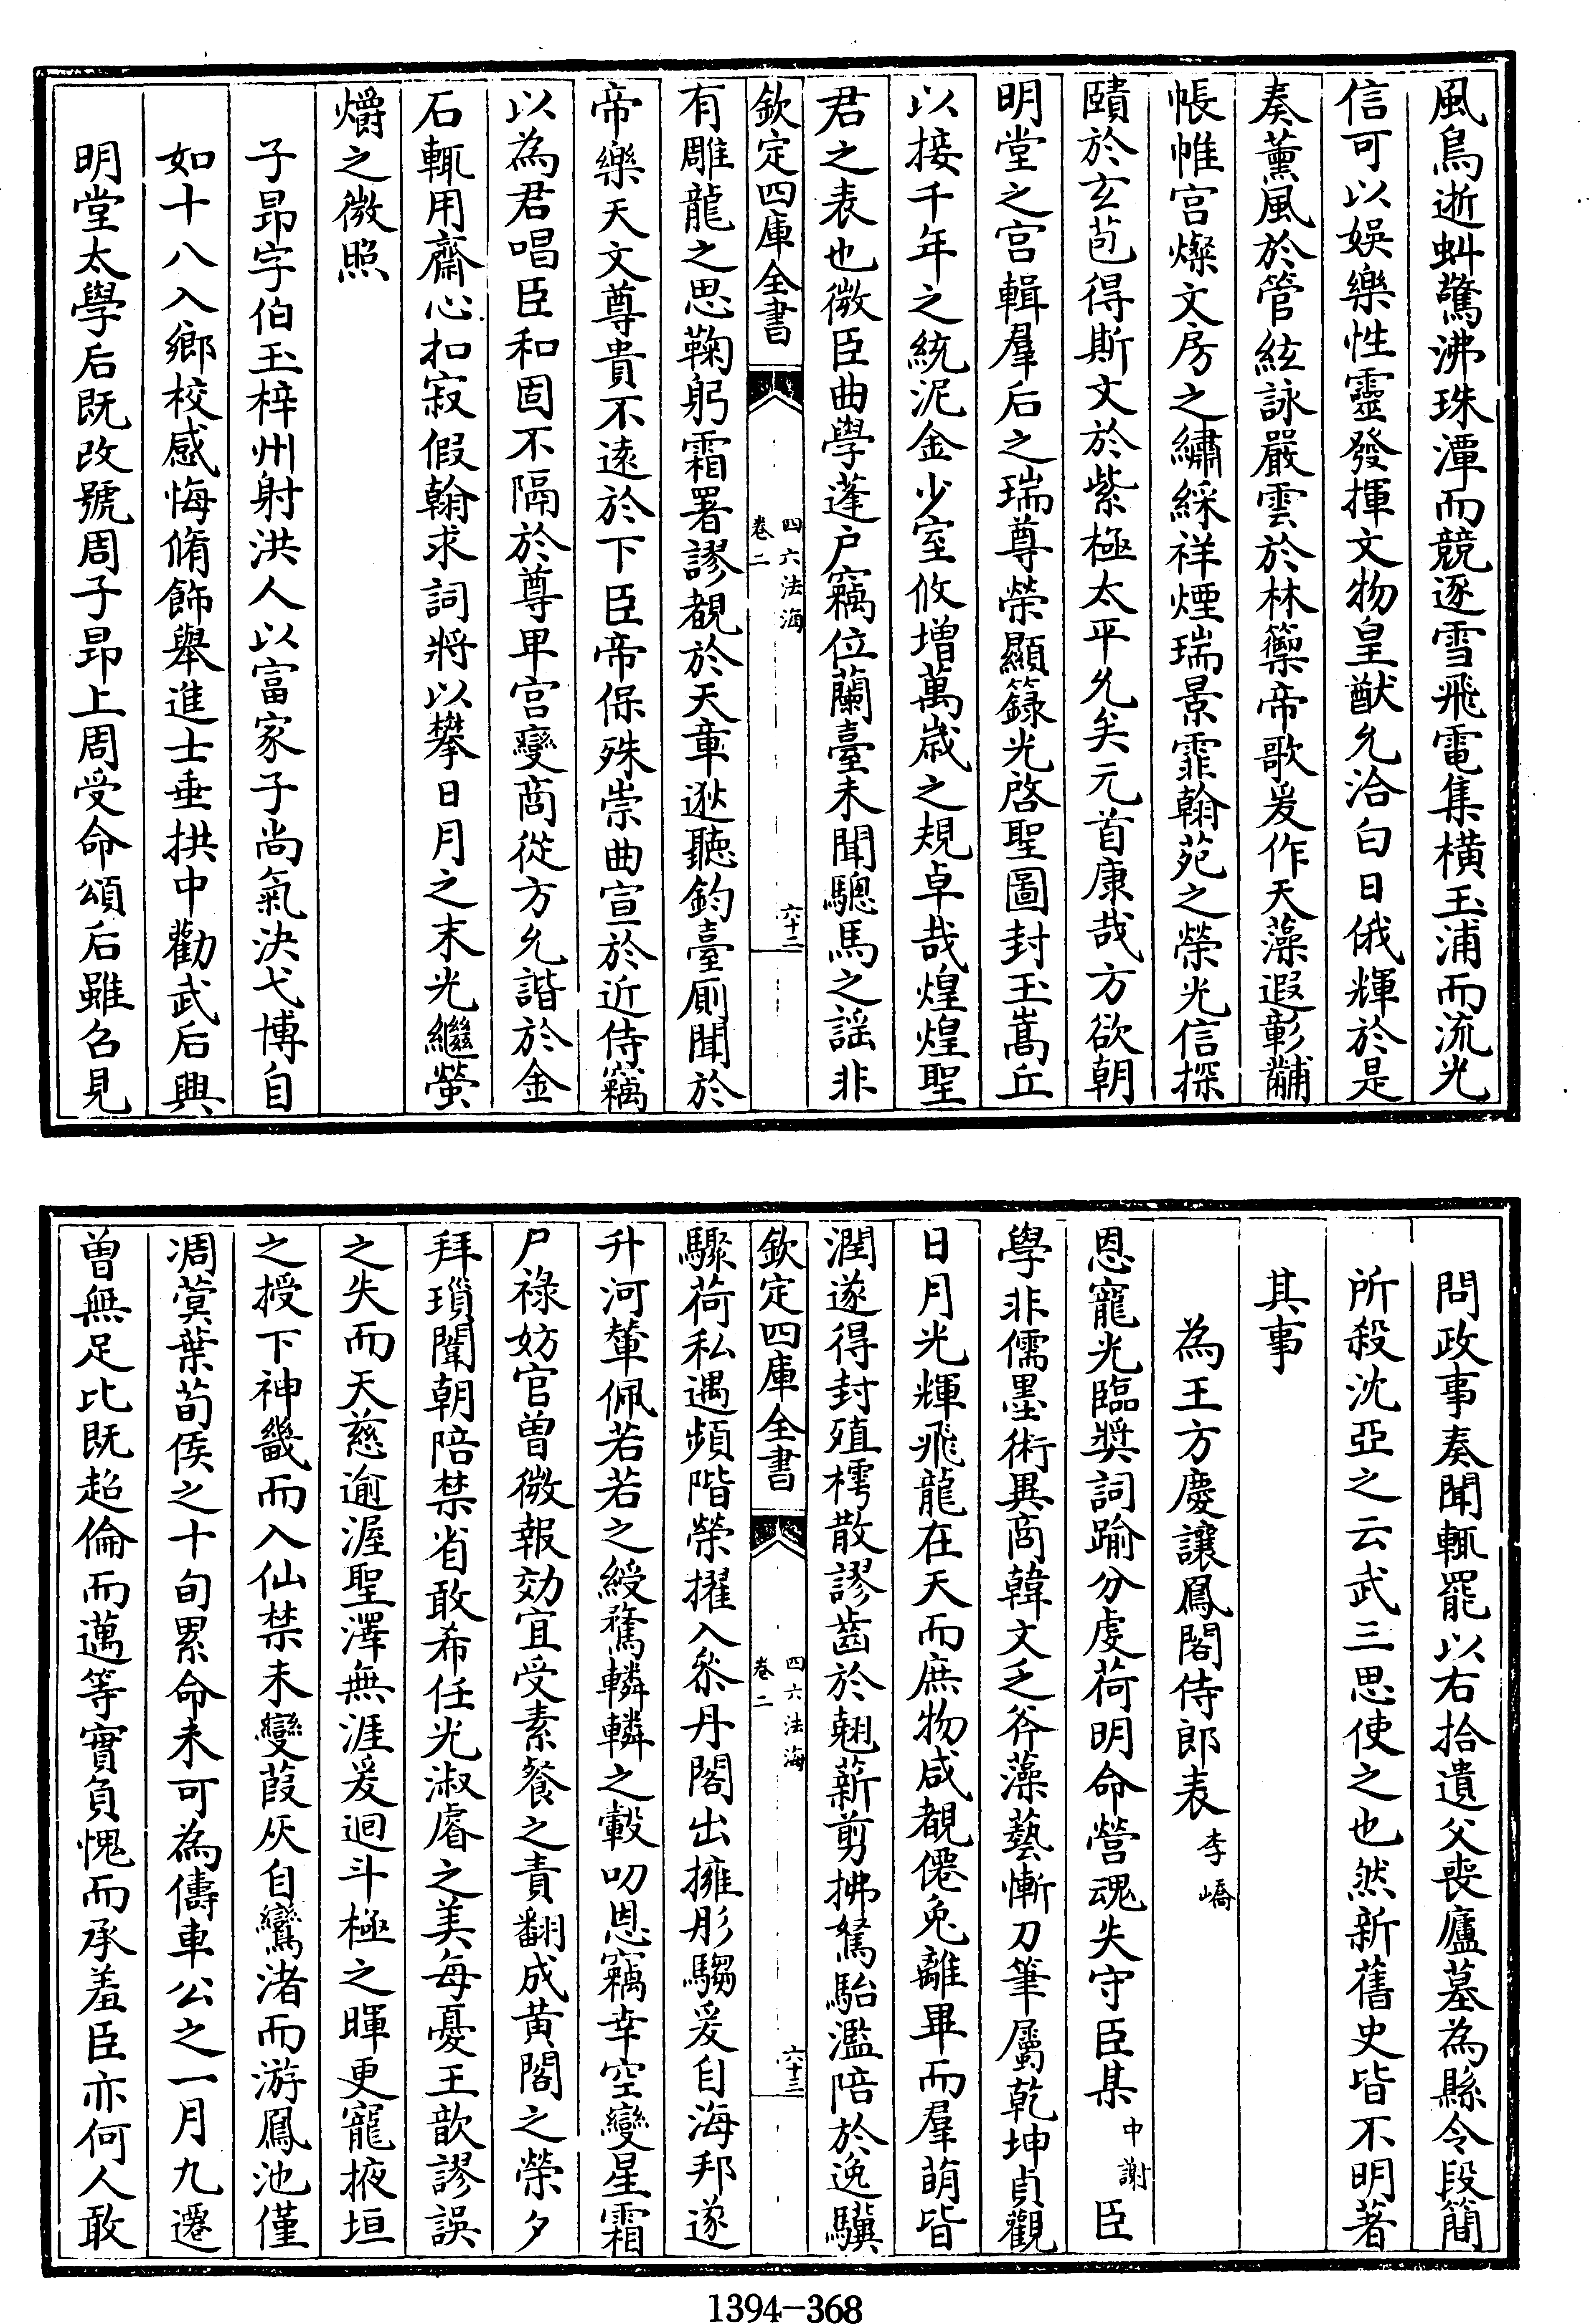 風鳥逝虯驚沸珠潭而競逐雪飛電集橫玉浦而流光
信可以娯樂性靈發揮文物皇猷允洽白日俄輝於是
奏薰風於管絃詠嚴雲於林籞帝歌爰作天藻遐彰黼
帳帷宫燦文房之繡綵祥煙瑞景霏翰苑之榮光信探
賾於玄苞得斯文於紫極太平允矣元首康哉方欲朝
明堂之宫輯羣后之瑞尊榮顯籙光啓聖圖封玉嵩丘
以接千年之統泥金少室攸增萬歳之規卓哉煌煌聖
君之表也微臣曲學蓬户竊位蘭臺未聞驄馬之謡非
欽定四庫全書
四六法海
卷二
六十二
有雕龍之思鞠躬霜署謬覩於天章逖聽鈞臺厠聞於
帝樂天文尊貴不逺於下臣帝保殊崇曲宣於近侍竊
以為君唱臣和固不隔於尊卑宫變商從方允諧於金
石輒用齋心扣寂假翰求詞將以攀日月之末光繼螢
爝之微照
子昻字伯玉梓州射洪人以富家子尚氣決弋博自
如十八入鄉校感悔脩飾舉進士垂拱中勸武后興
明堂太學后既改號周子昻上周受命頌后雖召見
問政事奏聞輒罷以右拾遺父喪廬墓為縣令段簡
所殺沈亞之云武三思使之也然新舊史皆不明著
其事
為王方慶讓鳳閣侍郎表 李嶠
恩寵光臨奬詞踰分虔荷明命營魂失守臣某 中謝 臣
學非儒墨術異商韓文乏斧藻藝慚刀筆屬乾坤貞觀
日月光輝飛龍在天而庶物咸覩僊兔離畢而羣萌皆
潤遂得封殖樗散謬齒於翹薪剪拂駑駘濫陪於逸驥
欽定四庫全書
四六法海
卷二
六十三
驟荷私遇頻階榮擢入叅丹閣出擁彤騶爰自海邦遂
升河輦佩若若之綬驚轔轔之轂叨恩竊幸空變星霜
尸禄妨官曽微報効宜受素餐之責翻成黄閣之榮夕
拜瑣闈朝陪禁省敢希任光淑睿之美每憂王歆謬誤
之失而天慈逾渥聖澤無涯爰迴斗極之暉更寵掖垣
之授下神畿而入仙禁未變葭灰自鸞渚而游鳳池僅
凋蓂葉荀侯之十旬累命未可為儔車公之一月九遷
曽無足比既超倫而邁等實負愧而承羞臣亦何人敢
1394-368